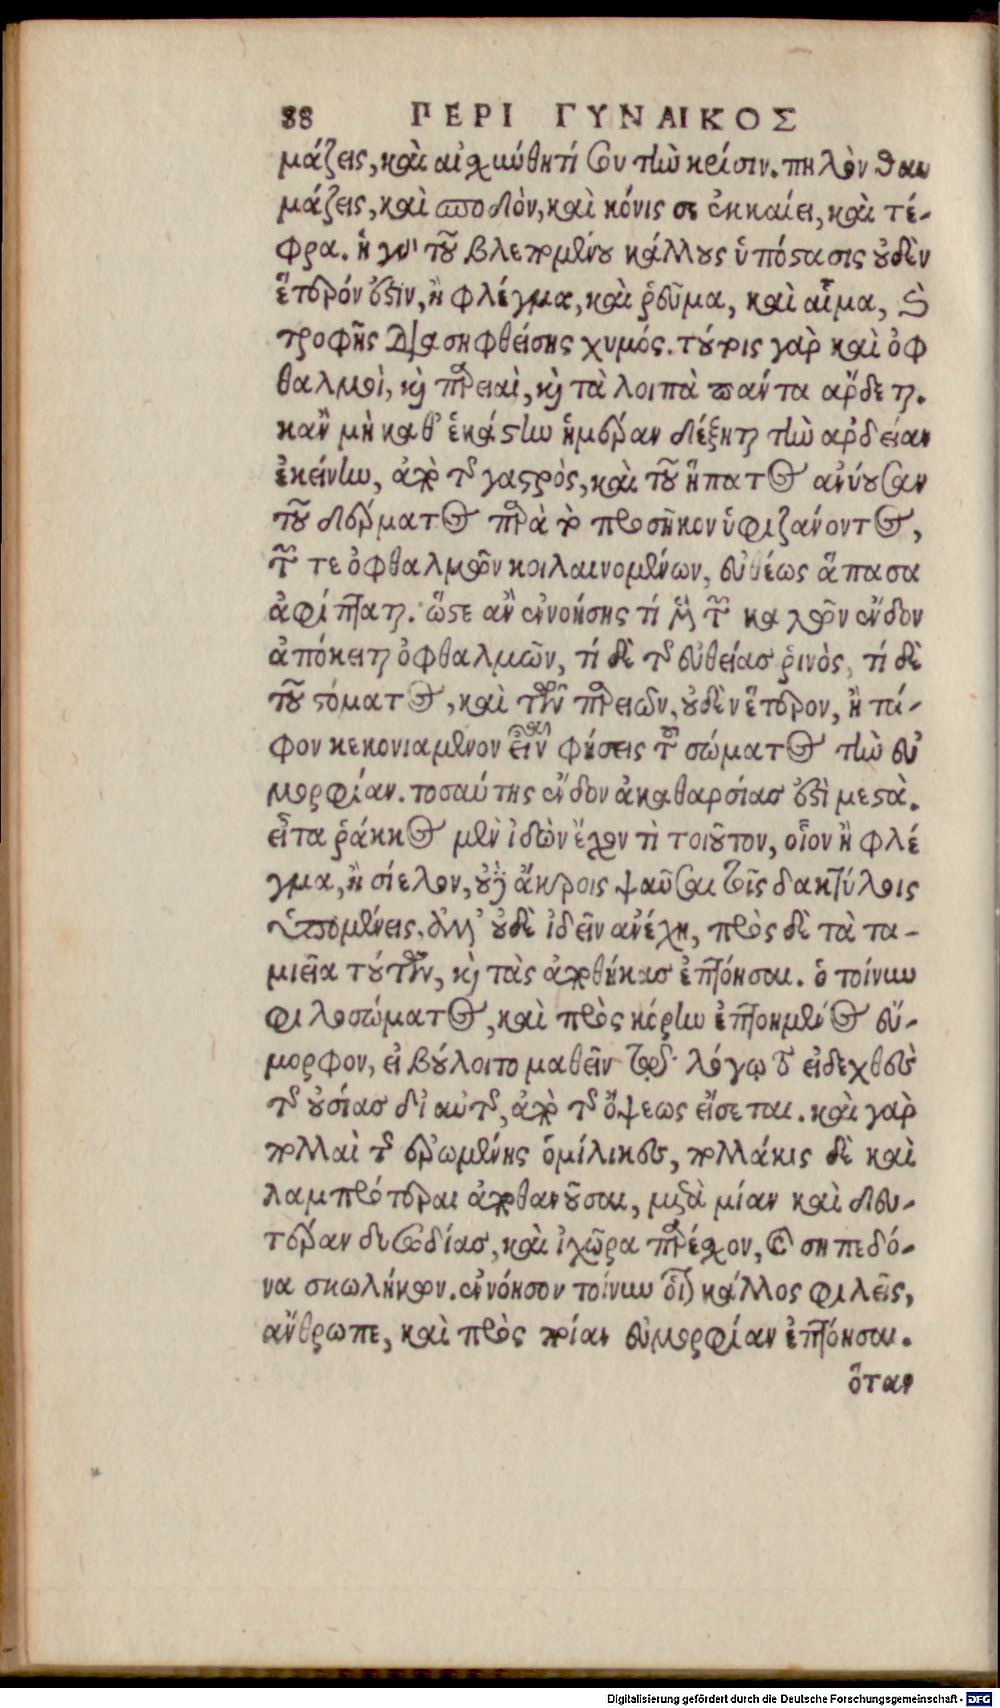 88 ΠΕΡΙ ΓΥΝΑΙΚΟΣ
μάζεις, καὶ αἰσχύνθητί σου τὴν κρίσιν. πηλὸν θαυ
μάζεις, καὶ σποδὸν, καὶ κόνις σε ἐκκαίει, καὶ τέ-
φρα. ἡ γὰρ τοῦ βλεπομένου κάλλους ὑπόστασις οὐδὲν
ἕτερόν ἐστιν, ἢ φλέγμα, καὶ ῥεῦμα, καὶ αἷμα, καὶ
τροφῆς διασηφθείσης χυμός. τούτοις γὰρ καὶ ὀφ
θαλμοὶ, καὶ παρειαὶ, καὶ τὰ λοιπὰ πάντα ἄρδεται.
κἂν μὴ καθ' ἑκάστην ἡμέραν δέξηται τὴν ἀρδείαν
ἐκείνην, ἀπὸ τῆς γαστρὸς, καὶ τοῦ ἥπατος ἀνιοῦσαν
τοῦ δέρματος παρὰ τὸ προσῆκον ὑφιζάνοντος,
τῶν τε ὀφθαλμῶν κοιλαινομένων, εὐθέως ἅπασα
ἀφίπταται. ὥστε ἂν ἐννοήσῃς τί μὲν τῶν καλῶν ἔνδον
ἀπόκειται ὀφθαλμῶν, τί δὲ τῆς εὐθείας ῥινὸς, τί δὲ
τοῦ στόματος, καὶ τῶν παρειῶν, οὐδὲν ἕτερον, ἢ τά-
φον κεκονιαμένον εἶναι φήσεις τοῦ σώματος τὴν εὐ
μορφίαν. τοσαύτης ἔνδον ἀκαθαρσίας ἐστὶ μεστὰ.
εἶτα ῥάκκος μὲν ἰδὼν ἔχον τὶ τοιοῦτον, οἷον ἢ φλέ
γμα, ἢ σίελον, οὐδὲ ἄκροις ψαῦσαι τοῖς δακτύλοις
ὑπομένεις. ἀλλ' οὐδὲ ἰδεῖν ἀνέχῃ, πρὸς δὲ τὰ τα-
μιεῖα τούτων, καὶ τὰς ἀποθήκας ἐπτόησαι. ὁ τοίνυν
φιλοσώματος, καὶ πρὸς κόρην ἐπτοημένος εὔ-
μορφον, εἰ βούλοιτο μαθεῖν τῷ λόγῳ τὸ εἰδεχθὲς
τῆς οὐσίας δι' αὐτῆς, ἀπὸ τῆς ὄψεως εἴσεται. καὶ γὰρ
πολλαὶ τῆς ἐρωμένης ὁμίλικες, πολλάκις δὲ καὶ
λαμπρότεραι ἀποθανοῦσαι, μετὰ μίαν καὶ δευ-
τέραν δυσωδίας, καὶ ἰχῶρα παρέχον, καὶ σηπεδό-
να σκωλήκων. ἐννόησον τοίνυν οἷον κάλλος φιλεῖς,
ἄνθρωπε, καὶ πρὸς ποίαν εὐμορφίαν ἐπτόησαι.
ὅταν
Digitalisierung gefördert durch die Deutsche Forschungsgemeinschaft - DFG